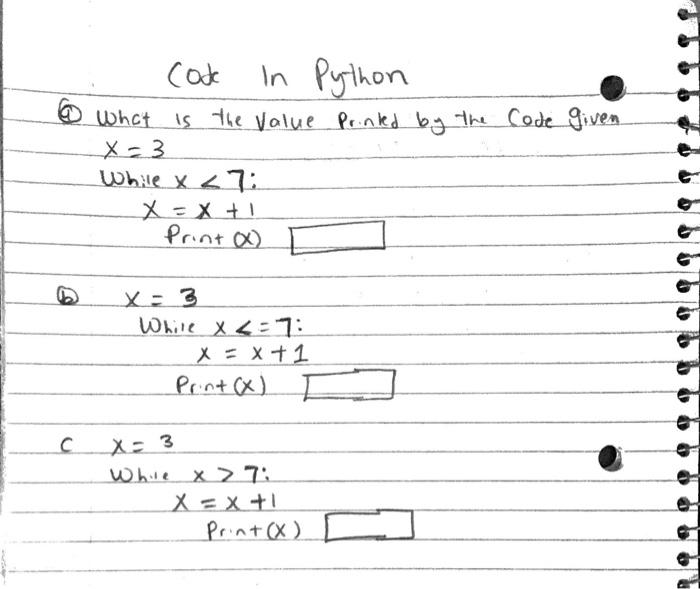 Code In Python
(a) What is the Value Printed by the Code given
x = 3
While x < 7:
x = x + 1
Print (x)
(b) x = 3
While x <= 7:
x = x + 1
Print (x)
C x = 3
While x > 7:
x = x + 1
Print (x)